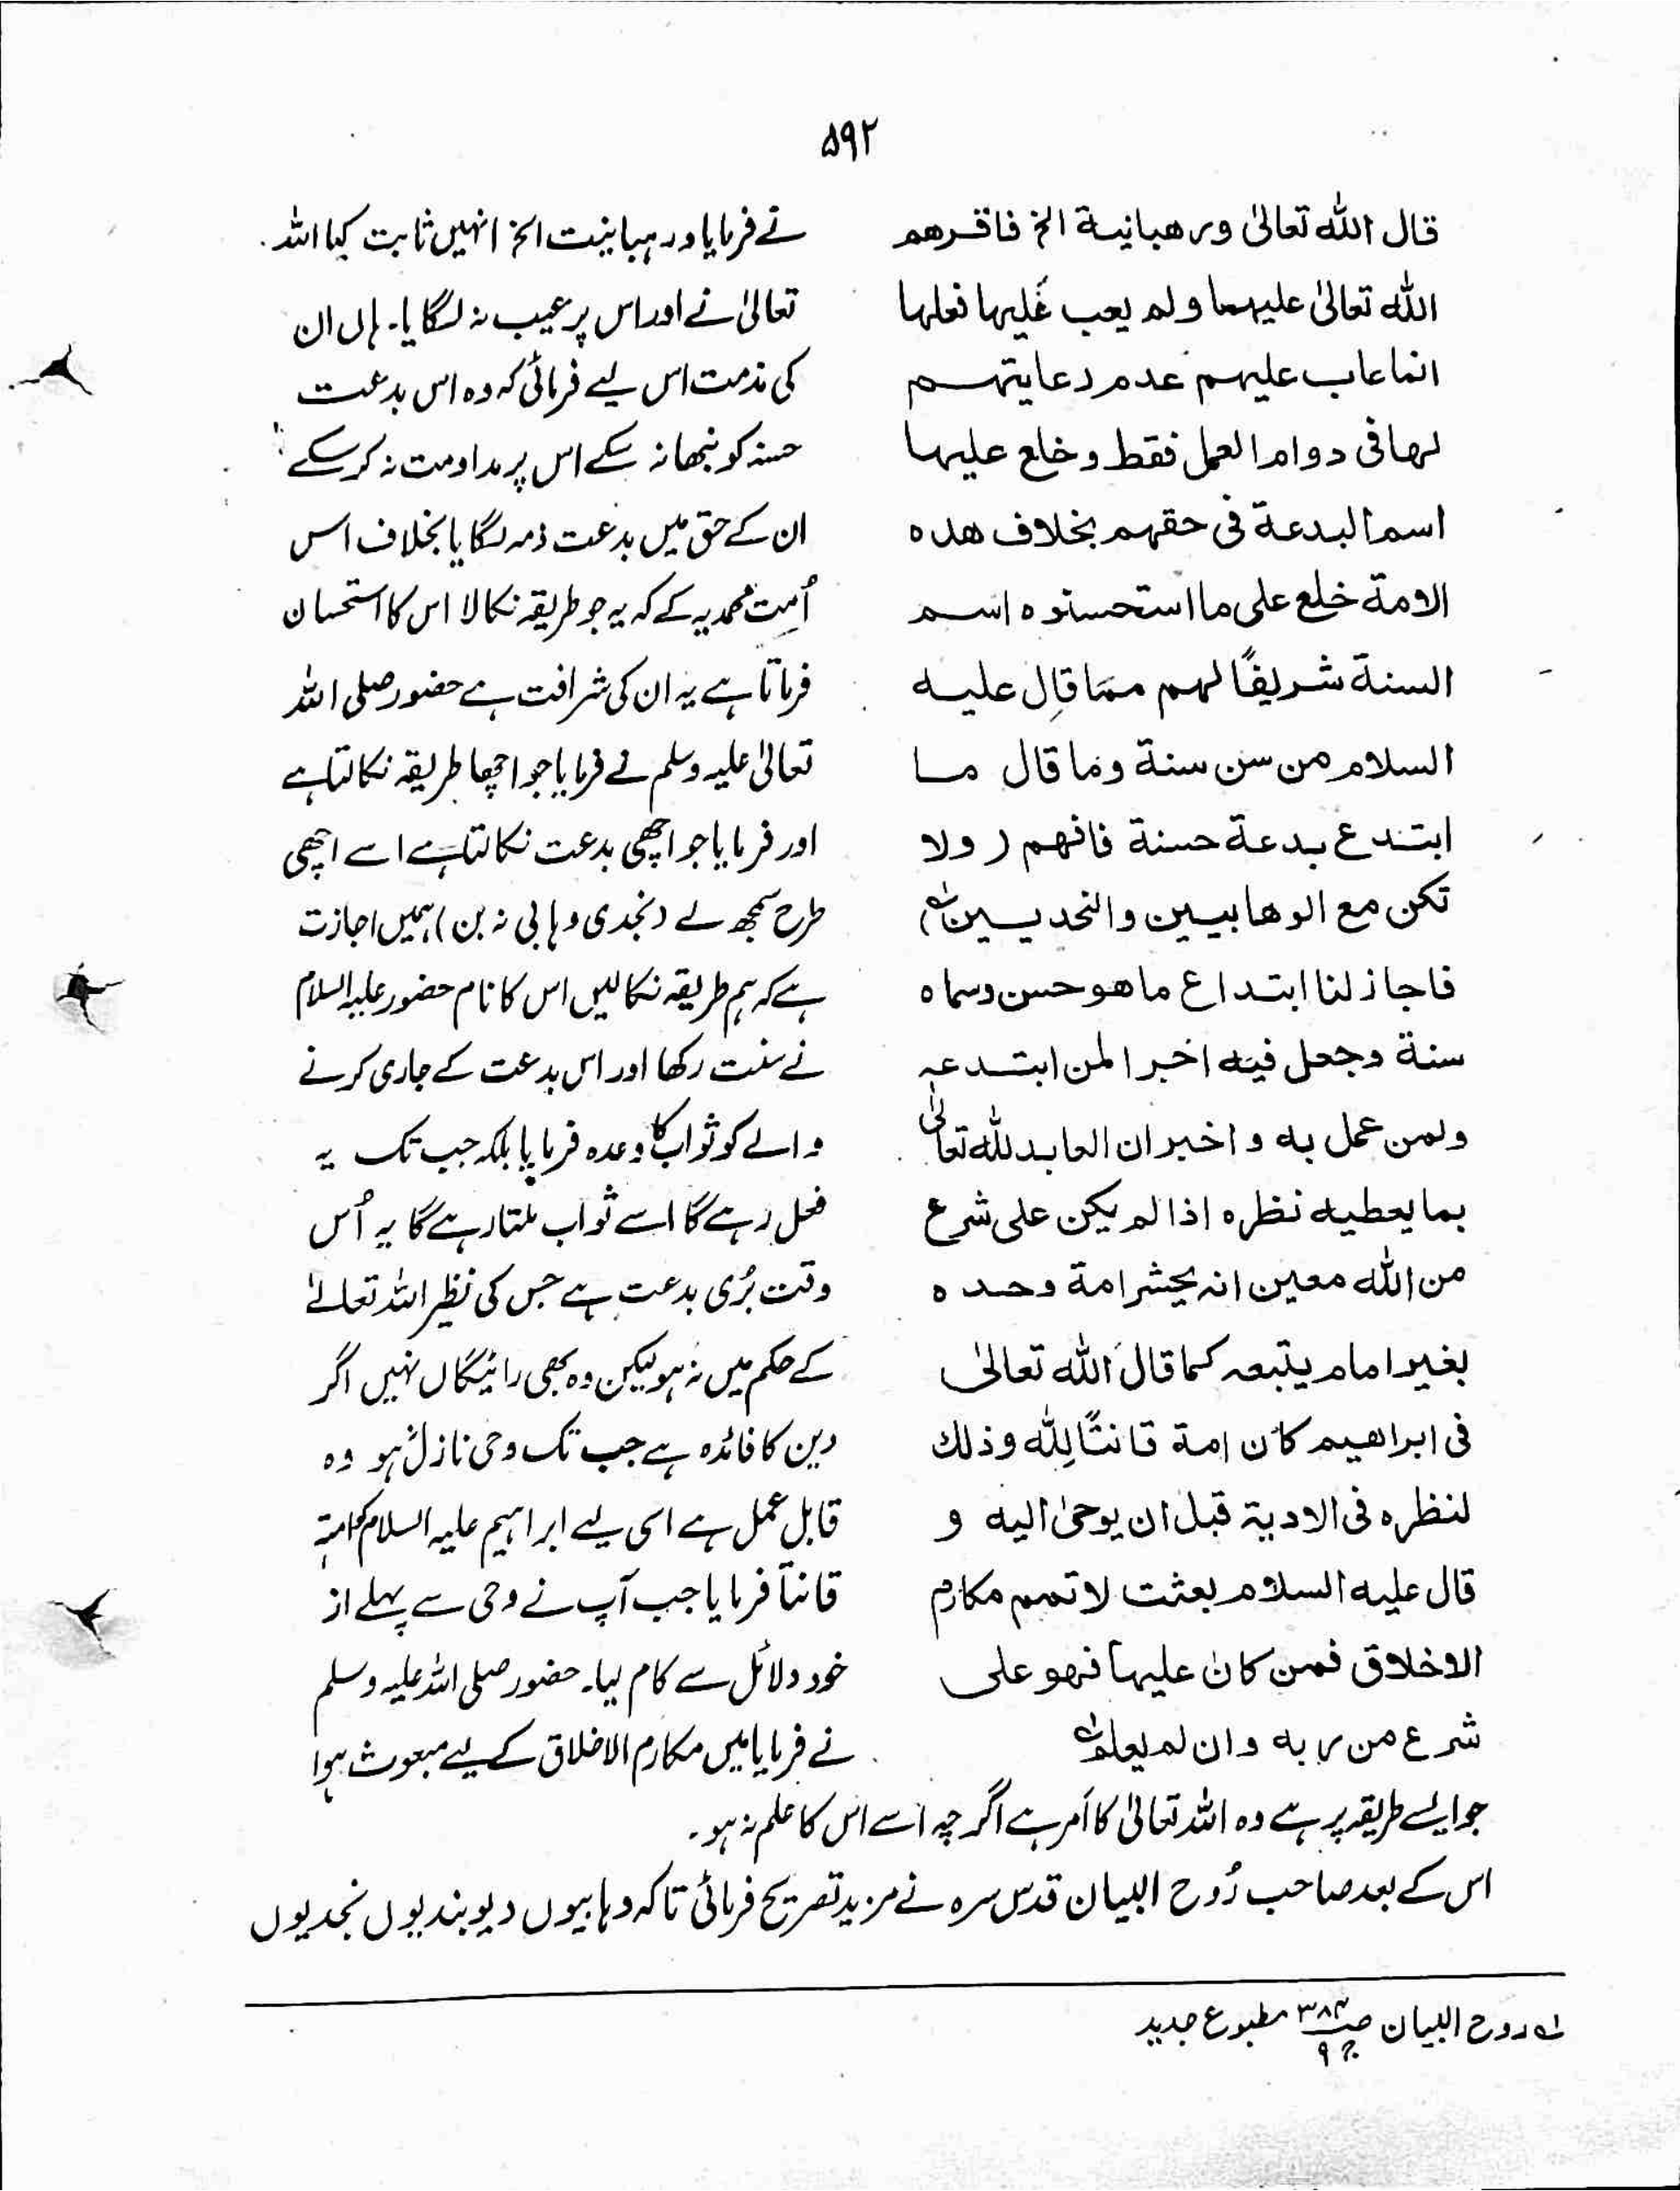 ۵۹۲
قال الله تعالیٰ ورهبانية الخ فاقرهم
الله تعالیٰ عليهما ولم يعب عليها فعلها
انما عاب عليهم عدم رعايتهم
لها فى دوام العمل فقط وخلع عليها
اسم البدعة فى حقهم بخلاف هذه
الامة خلع على ما استحسنوه اسم
السنة شريفًا لهم مما قال عليه
السلام من سن سنة وما قال ما
ابتدع بدعة حسنة فافهم (ولا
تكن مع الوهابيين والنجديين)
فاجاز لنا ابتداع ما هو حسن وسماه
سنة وجعل فيه اخبرا لمن ابتدعه
ولمن عمل به واخبر ان العابد لله تعالیٰ
بما يعطيه نظره اذا لم يكن على شرع
من الله معين انه يحشر امة وحده
بغير امام يتبعه كما قال الله تعالیٰ
فى ابراهيم كان امة قانتًا لِلّٰه وذلك
لنظره فى الادية قبل ان يوحیٰ اليه و
قال عليه السلام بعثت لاتمم مكارم
الاخلاق فمن كان عليها فهو على
شرع من ربه وان لم يعلم
نے فرمایا ورہبانیت الخ انہیں ثابت کیا اللہ
تعالیٰ نے اور اس پر عیب نہ لگایا۔ ہاں ان
کی مذمت اس لیے فرمائی کہ وہ اس بدعت
حسنہ کو نبھا نہ سکے اس پر مداومت نہ کرسکے
ان کے حق میں بدعت ذمہ لگایا بخلاف اس
اُمت محمدیہ کے کہ یہ جو طریقہ نکالا اس کا استحسان
فرماتا ہے یہ ان کی شرافت ہے حضور صلی اللہ
تعالیٰ علیہ وسلم نے فرمایا جو اچھا طریقہ نکالتا ہے
اور فرمایا جو اچھی بدعت نکالتا ہے اسے اچھی
طرح سمجھ لے (نجدی وہابی نہ بن) ہمیں اجازت
ہے کہ ہم طریقہ نکالیں اس کا نام حضور علیہ السلام
نے سنت رکھا اور اس بدعت کے جاری کرنے
والے کو ثواب کا وعدہ فرمایا بلکہ جب تک یہ
فعل رہے گا اسے ثواب ملتا رہے گا یہ اُس
وقت بُری بدعت ہے جس کی نظیر اللہ تعالےٰ
کے حکم میں نہ ہو لیکن وہ بھی رائیگاں نہیں اگر
دین کا فائدہ ہے جب تک وحی نازل نہ ہو وہ
قابل عمل ہے اسی لیے ابراہیم علیہ السلام کو امۃ
قانتاً فرمایا جب آپ نے وحی سے پہلے از
خود دلائل سے کام لیا۔ حضور صلی اللہ علیہ وسلم
نے فرمایا میں مکارم الاخلاق کے لیے مبعوث ہوا
جو ایسے طریقہ پر ہے وہ اللہ تعالیٰ کا اَمر ہے اگرچہ اسے اس کا علم نہ ہو۔
اس کے بعد صاحب رُوح البیان قدس سرہ نے مزید تصریح فرمائی تاکہ وہابیوں دیوبندیوں نجدیوں
لہ روح البیان ص ۳۸۴ ج ۹ مطبوع جدید